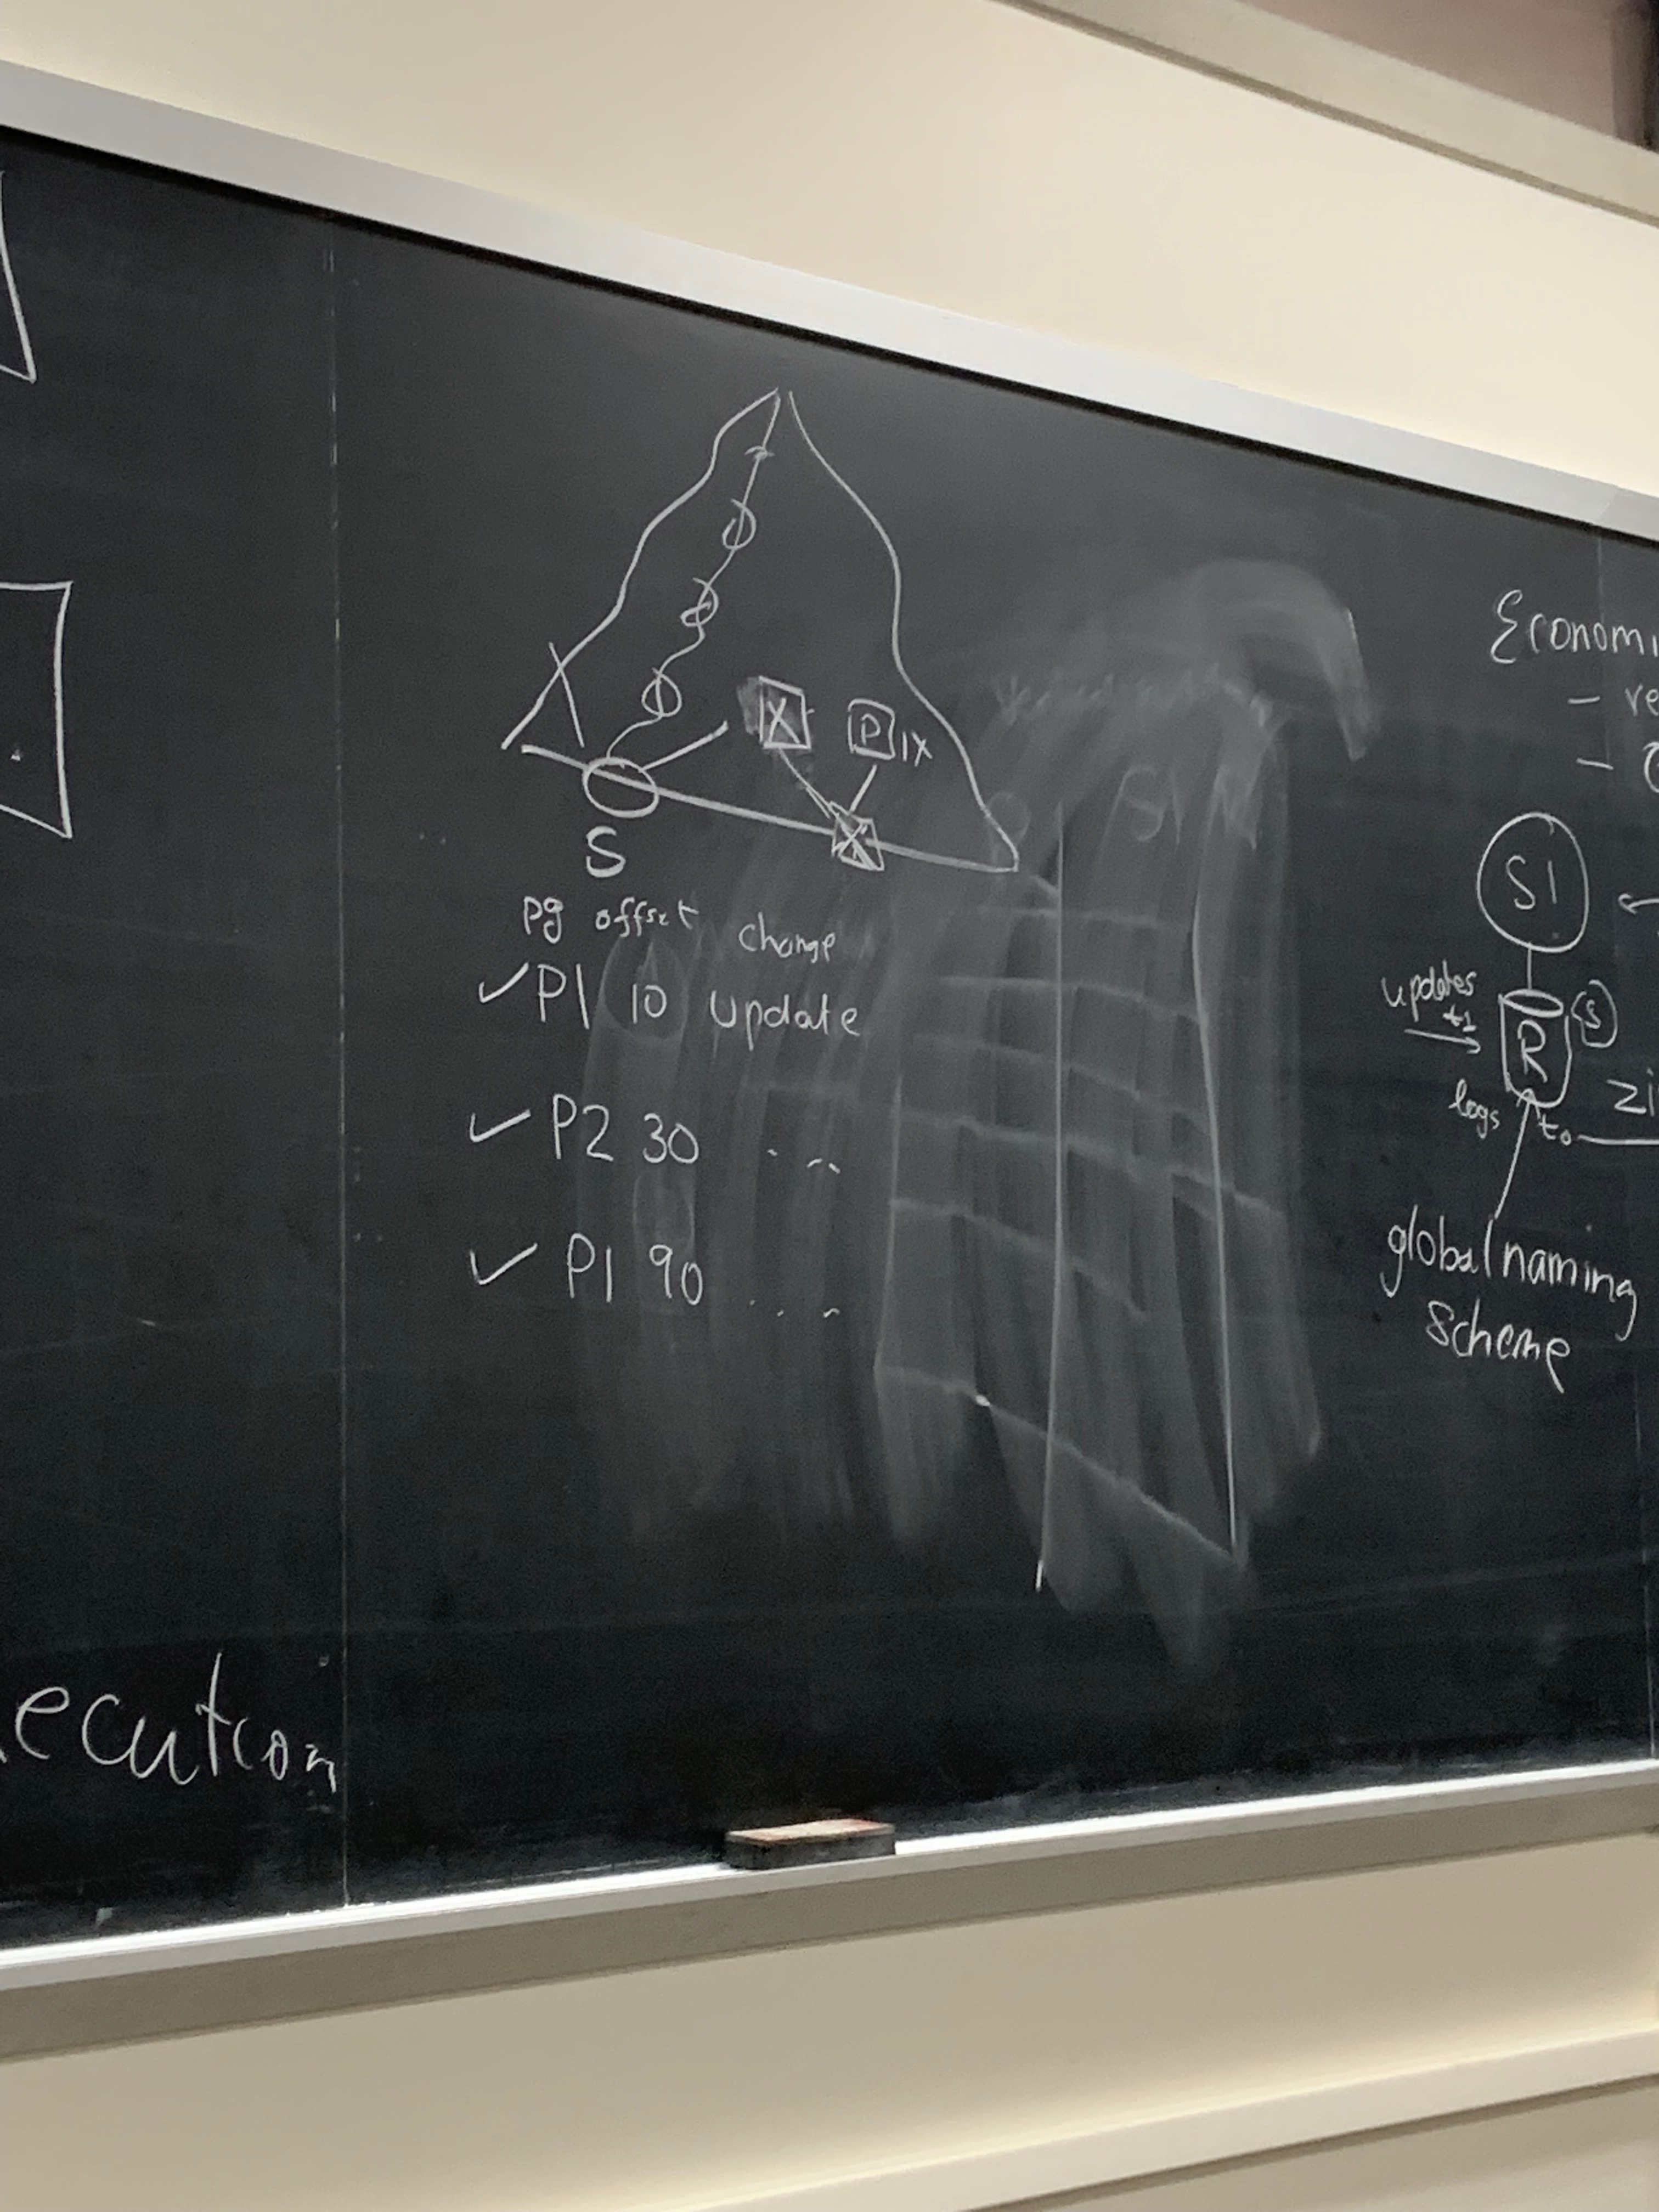 X
P IX
X
S
pg offset change
✓ P1 10 update
✓ P2 30 . . .
✓ P1 90 . . . .
ecution
Economi
- re
-
S1
updates
t1
R
S
logs
t0
zi
global naming
scheme